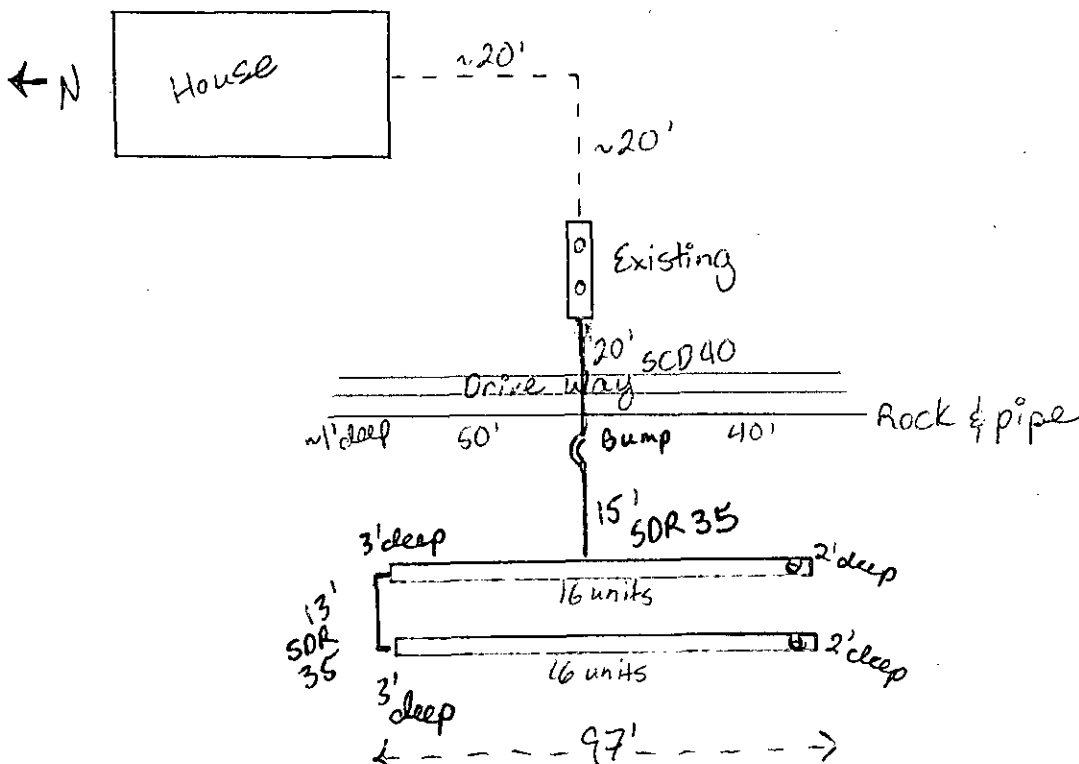 ~20'
← N
House
~20'
Existing
20' SCD 40
Drive way
Rock & pipe
~1' deep
50'
Bump
40'
15'
SDR 35
3' deep
2' deep
16 units
13'
SDR
35
2' deep
16 units
3'
deep
97'